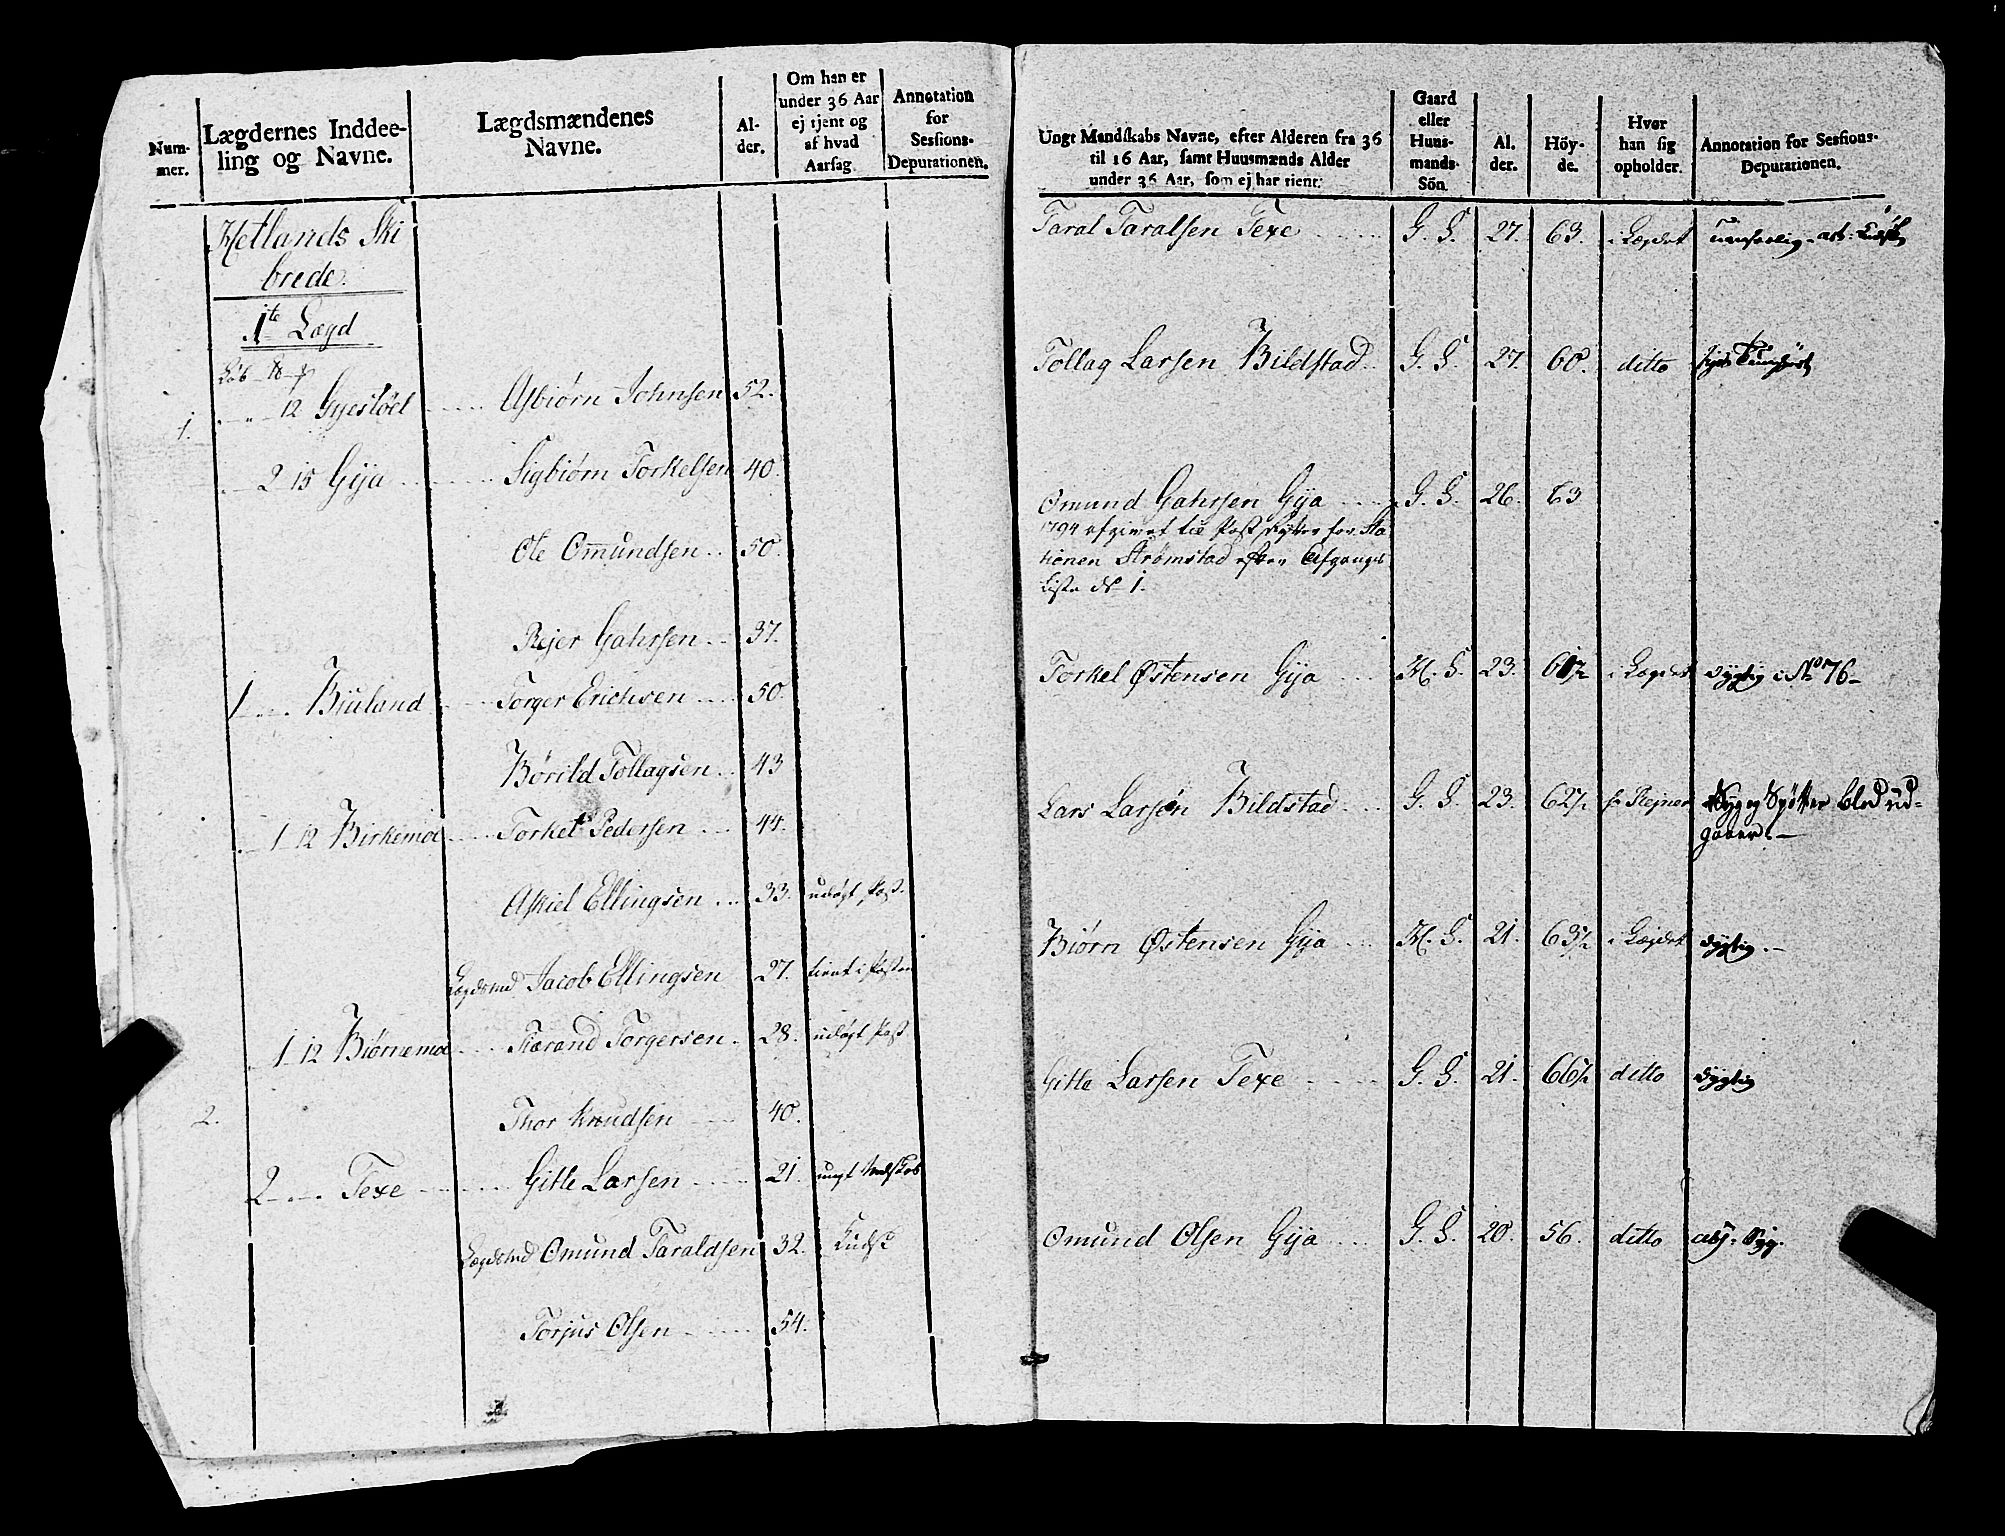 Num-
mer.
Lægdernes Inddee-
ling og Navne.
Lægdsmændenes
Navne.
Al-
der.
Om han er
under 36 Aar
ej tjent og
af hvad
Aarsag
Annotation
for
Sessions-
Deputationen.
Hetlands Ski
brede.
1te Lægd
Løb
1. 12 Gyestöel Asbiørn Johnsen 52.
2 15 Gija Sigbiørn Torkelsen 40.
Ole Omundsen 50.
Rejer Gahrsen 37.
1 Biuland Torger Erichsen 50
Børild Tollagsen 43
1 12 Birkemoe Torkel Pedersen 44.
Askiel Ellingsen 33. udygt Post.
Lægdsmd Jacob Ellingsen 27. tient i Posten
1 12 Biørnemoe Tarand Torgersen 28. udygt Post
2. Thor Knudsen 40.
2 Texe Gitle Larsen 21. ungt Mdskab
Lægdsmd Omund Taraldsen 32. Kudsk
Torjus Olsen 54.
Ungt Mandskabs Navne, efter Alderen fra 36
til 16 Aar, samt Huusmænds Alder
under 36 Aar, som ej har tient.
Gaard
eller
Huus-
mands-
Sön.
Al.
der.
Höy-
de.
Hvor
han sig
opholder.
Annotation for Sessions-
Deputationen.
Taral Taralsen Texe G. S. 27. 63. i Lægdet
Tollag Larsen Bildstad G. S. 27. 60. ditto
Omund Gahrsen Gija G. S. 26. 63
1794 afgivet til Post Rytter for Sta
tionen Strømstad efter Afgangs
Liste No 1.
Torkel Østensen Gija H. S. 23. 61 1/2 i Lægdet dygtig i No 76
Lars Larsen Bildstad G. S. 23. 62 1/2 Syg og Spötter blod ud-
gaaer.
Biørn Østensen Gija H. S. 21. 63 1/2 i Lægdet dygtig.
Gitle Larsen Texe G. S. 21. 66 1/2 ditto dygtig
Omund Olsen Gija G. S. 20. 56. ditto